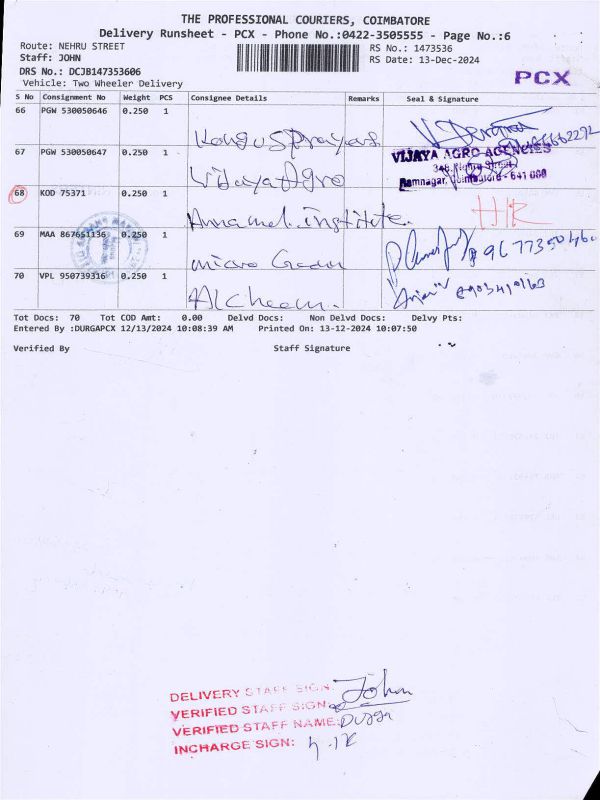 THE PROFESSIONAL COURIERS, COIMBATORE
Delivery Runsheet - PCX - Phone No.:0422-3505555 - Page No.:6
Route: NEHRU STREET RS No.: 1473536
Staff: JOHN RS Date: 13-Dec-2024
DRS No.: DCJB147353606
Vehicle: Two Wheeler Delivery
PCX
S No Consignment No Weight PCS Consignee Details Remarks Seal & Signature
66 PGW 530050646 0.250 1
Kongu Sprayers
67 PGW 530050647 0.250 1
VIJAYA AGRO AGENCIES
348, Nehru Street
Vijaya Agro Ramnagar, Coimbatore - 641 009
68 KOD 75371 0.250 1
Annamel. institute.
69 MAA 867651136 0.250 1
micro Green 9677350460
70 VPL 950739316 0.250 1
Alcheem.
Tot Docs: 70 Tot COD Amt: 0.00 Delvd Docs: Non Delvd Docs: Delvy Pts:
Entered By :DURGAPCX 12/13/2024 10:08:39 AM Printed On: 13-12-2024 10:07:50
Verified By Staff Signature
DELIVERY STAFF SIGN: John
VERIFIED STAFF SIGN:
VERIFIED STAFF NAME: Durga
INCHARGE SIGN: